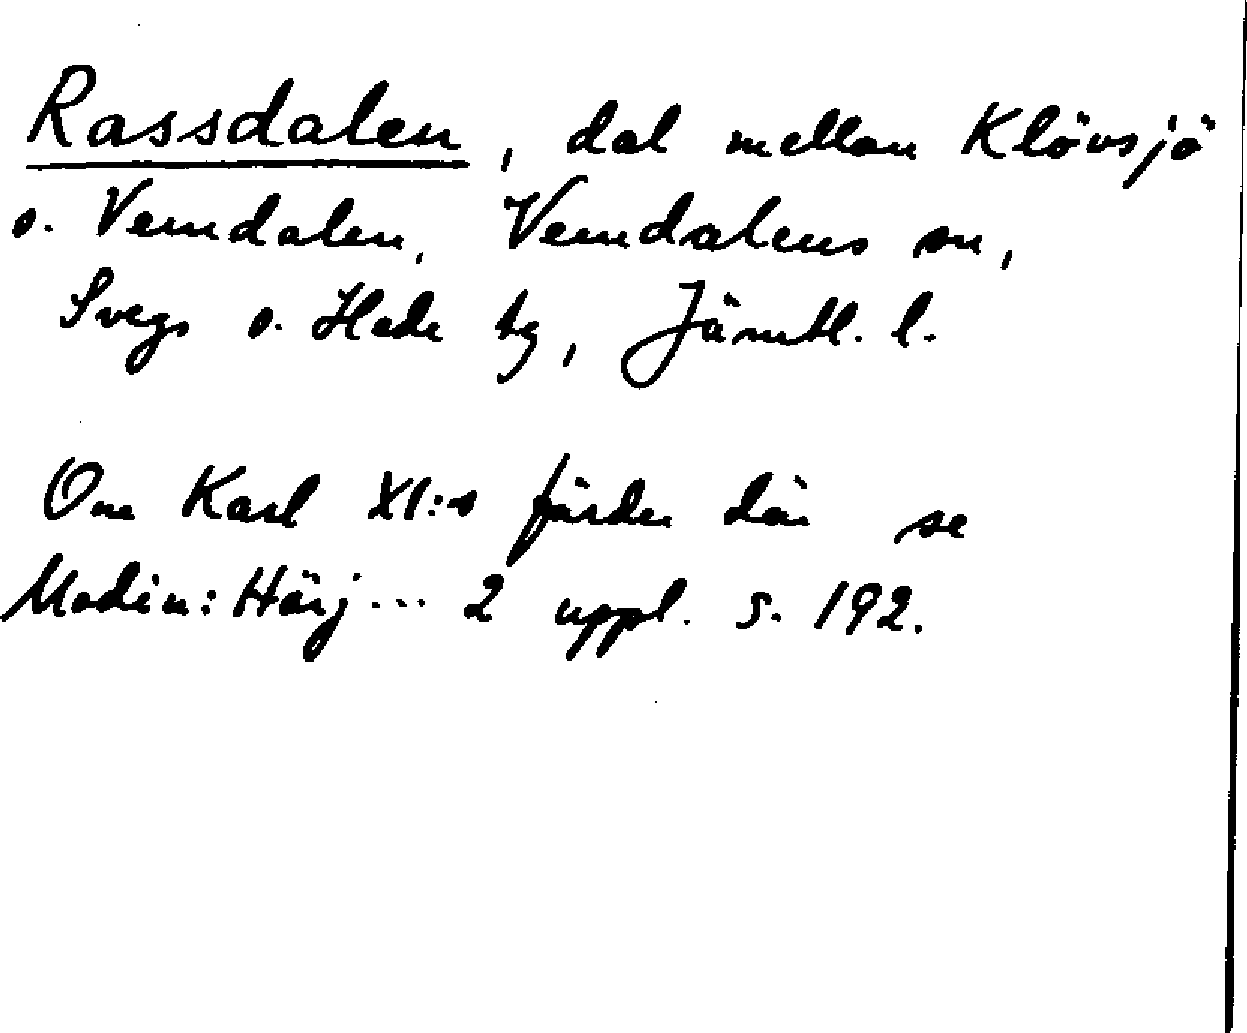 Rassdalen, dal mellan Klövsjö
o. Vemdalen, Vemdalens sn,
Svegs o. Hede tg, Jämtl. l.
Om Karl XI:s färder där se
Modin: Härj... 2 uppl. s. 192.